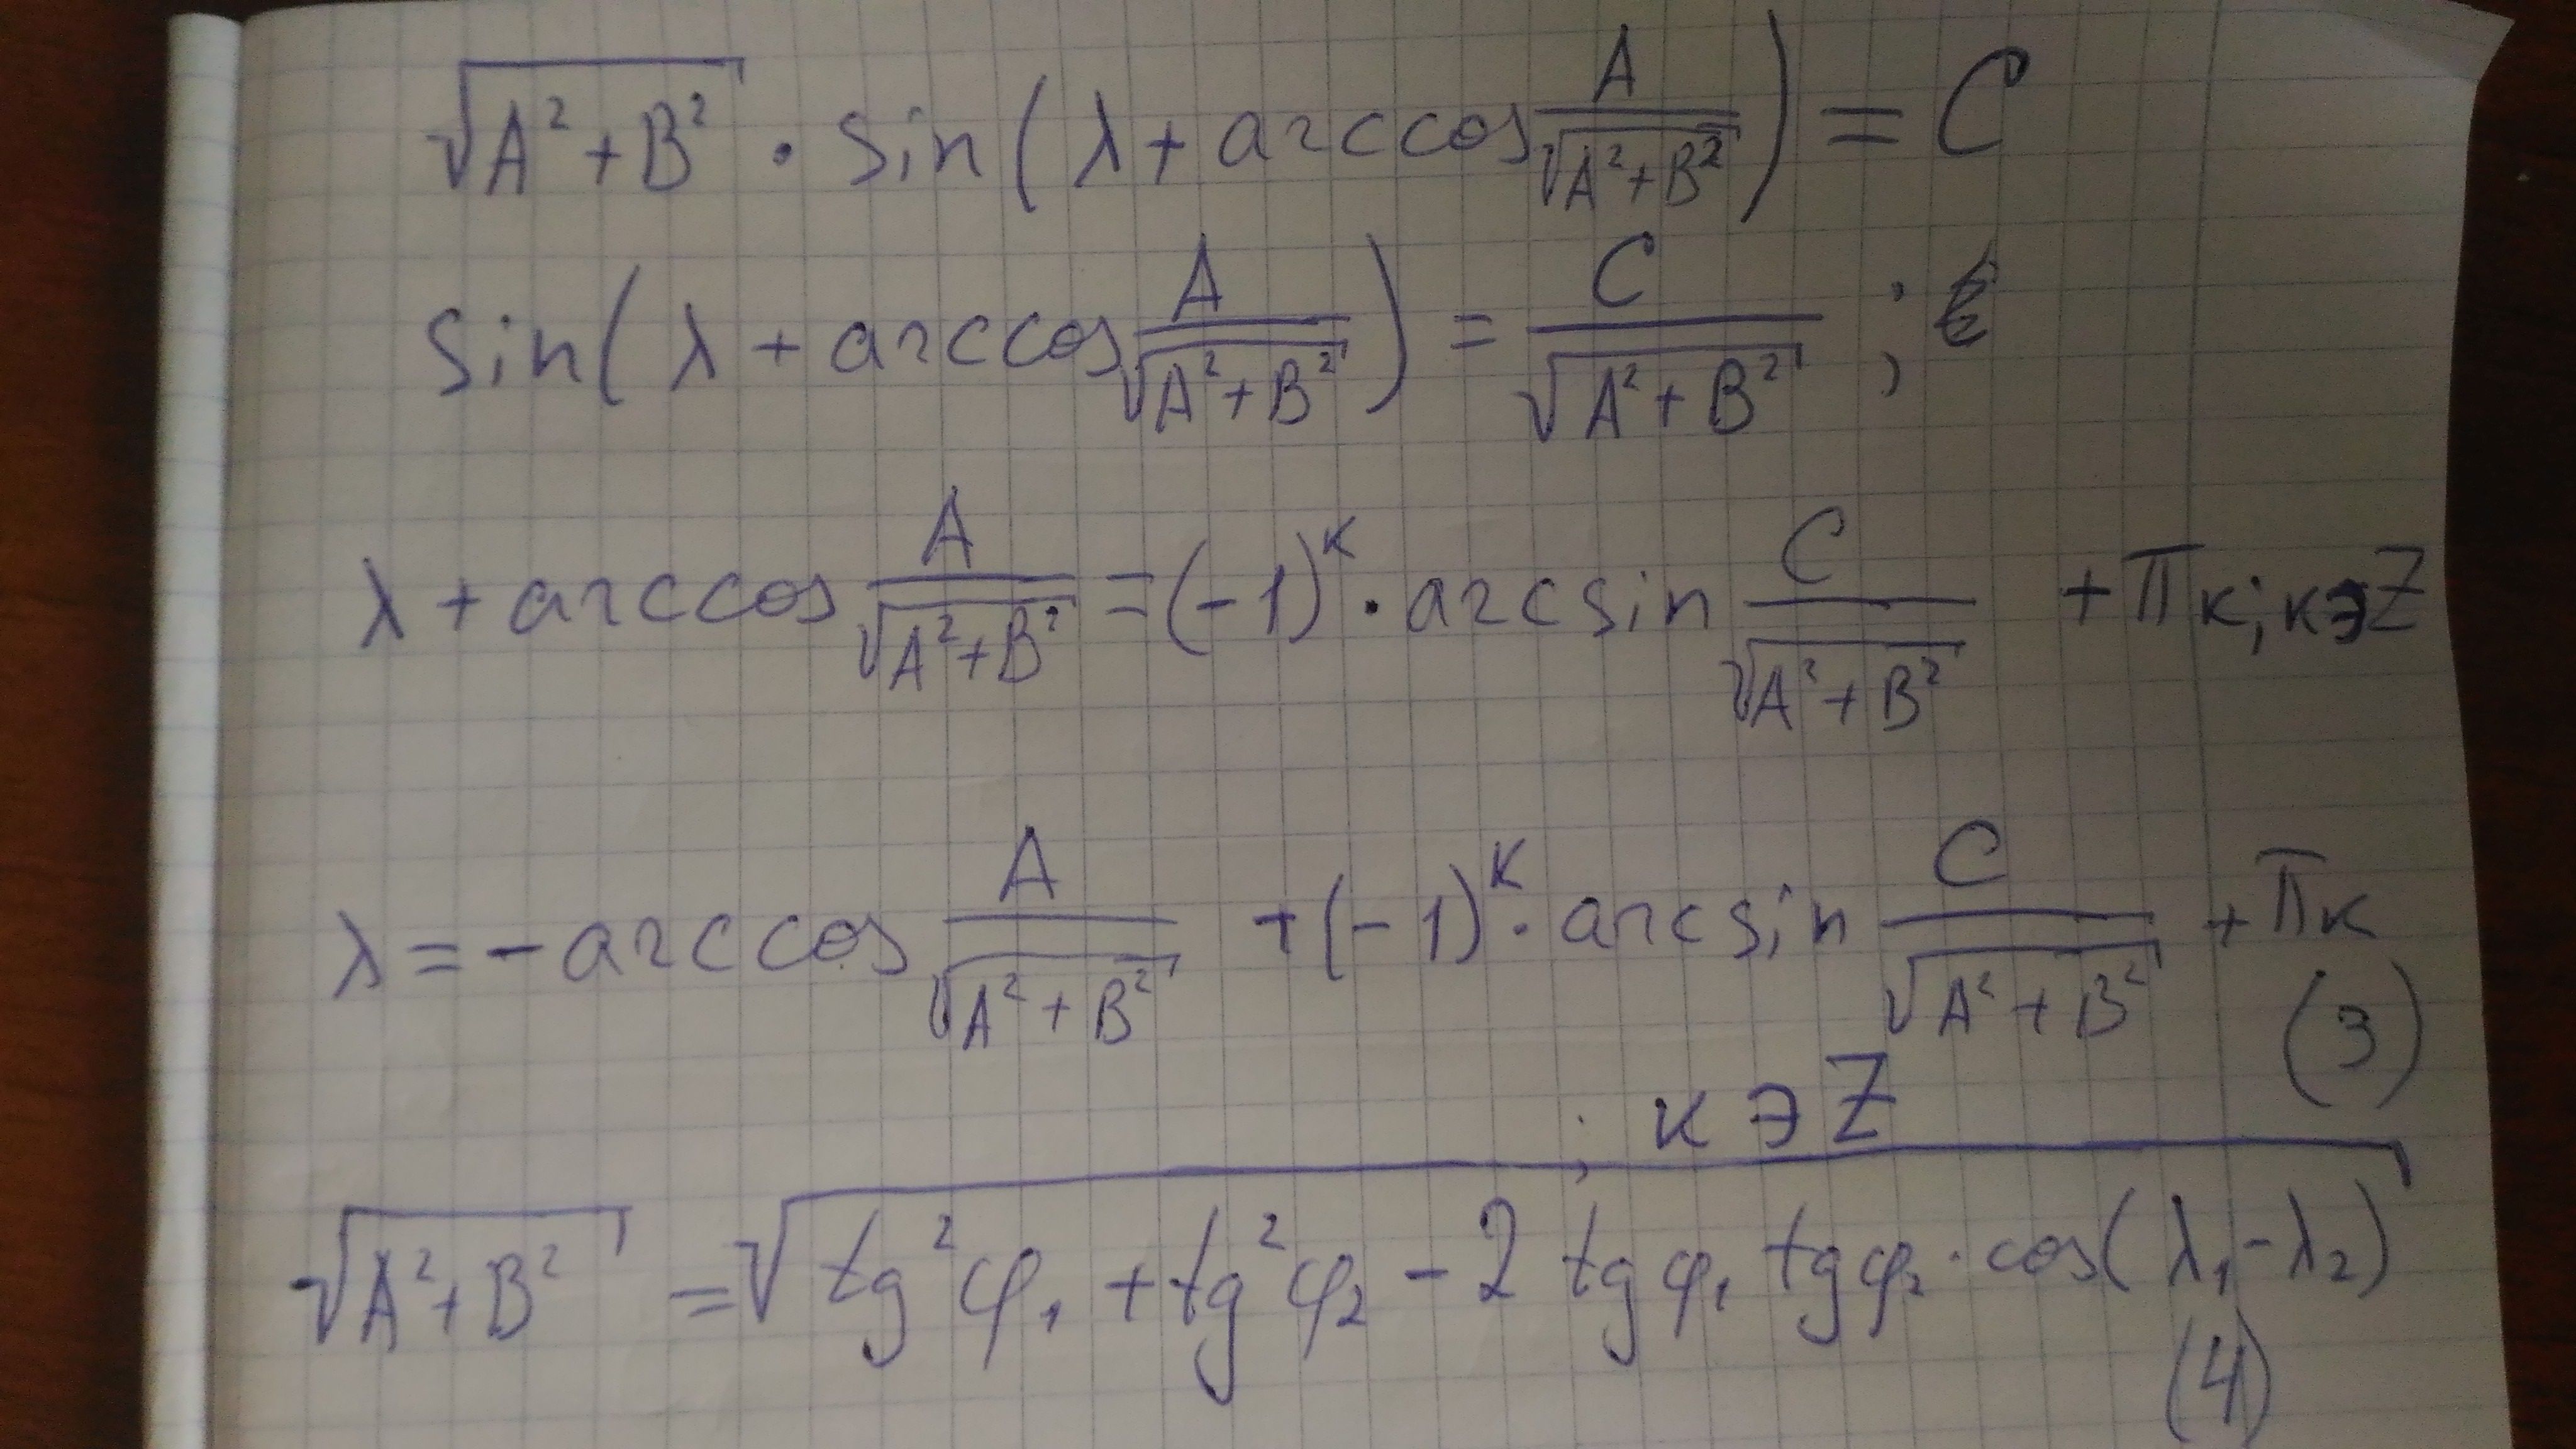 √(A²+B²) · sin(λ + arccos A/√(A²+B²)) = C
sin(λ + arccos A/√(A²+B²)) = C/√(A²+B²) ;
λ + arccos A/√(A²+B²) = (-1)ᴷ · arcsin C/√(A²+B²) + πк; кэZ
λ = - arccos A/√(A²+B²) + (-1)ᴷ · arcsin C/√(A²+B²) + πк
(3)
; к э Z
√(A²+B²) = √(tg²φ₁ + tg²φ₂ - 2 tgφ₁ tgφ₂ · cos(λ₁-λ₂))
(4)